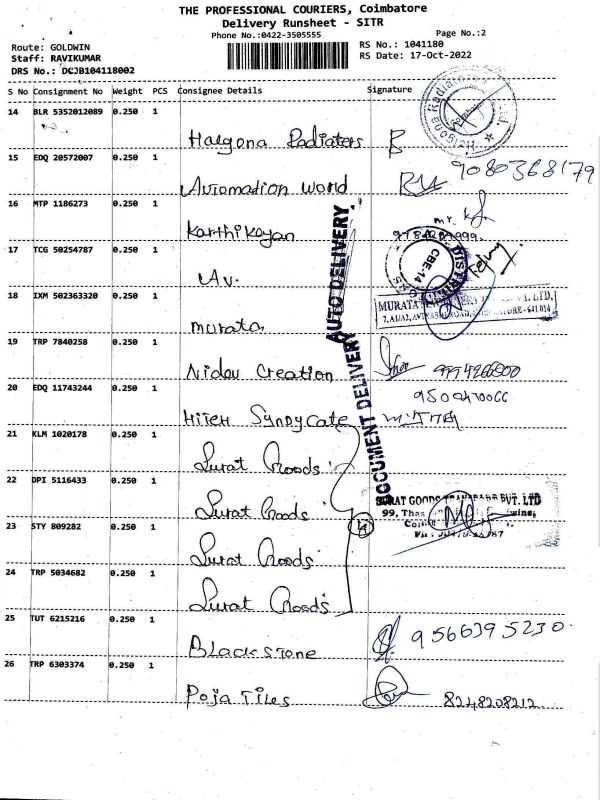 THE PROFESSIONAL COURIERS, Coimbatore
Delivery Runsheet - SITR
Phone No.:0422-3505555
Page No.:2
Route: GOLDWIN
Staff: RAVIKUMAR
DRS No.: DCJB104118002
RS No.: 1041180
RS Date: 17-Oct-2022
S No Consignment No Weight PCS Consignee Details Signature
14 BLR 5352012089 0.250 1
Halgona Radiaters
15 EDQ 20572007 0.250 1
Automation World 9080368179
16 MTP 1186273 0.250 1
Karthikeyan
17 TCG 50254787 0.250 1
CBE-14
18 IXM 502363320 0.250 1
murata
MURATA LTD.
19 TRP 7840258 0.250 1
Nidav Creation
20 EDQ 11743244 0.250 1
Hiteh Syndycate
AUTO DELIVERY
DOCUMENT DELIVERY
21 KLM 1020178 0.250 1
Surat Goods
22 DPI 5116433 0.250 1
Surat Goods
SURAT GOODS PVT. LTD
99, Thas
23 STY 809282 0.250 1
4
Surat Goods
24 TRP 5034682 0.250 1
Surat Goods
25 TUT 6215216 0.250 1
Blackstone 9566395230
26 TRP 6303374 0.250 1
Poja Tiles 8248208212